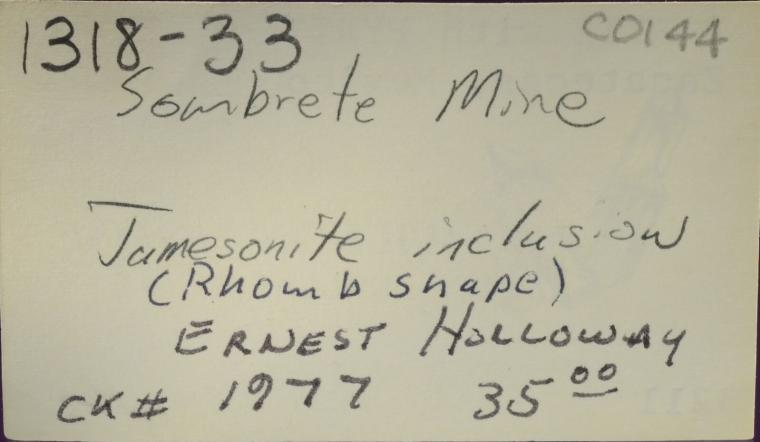 1318-33 CO144
Sombrete Mine
Jamesonite inclusion
(Rhomb shape)
ERNEST HOLLOWAY
CK# 1977 35 00